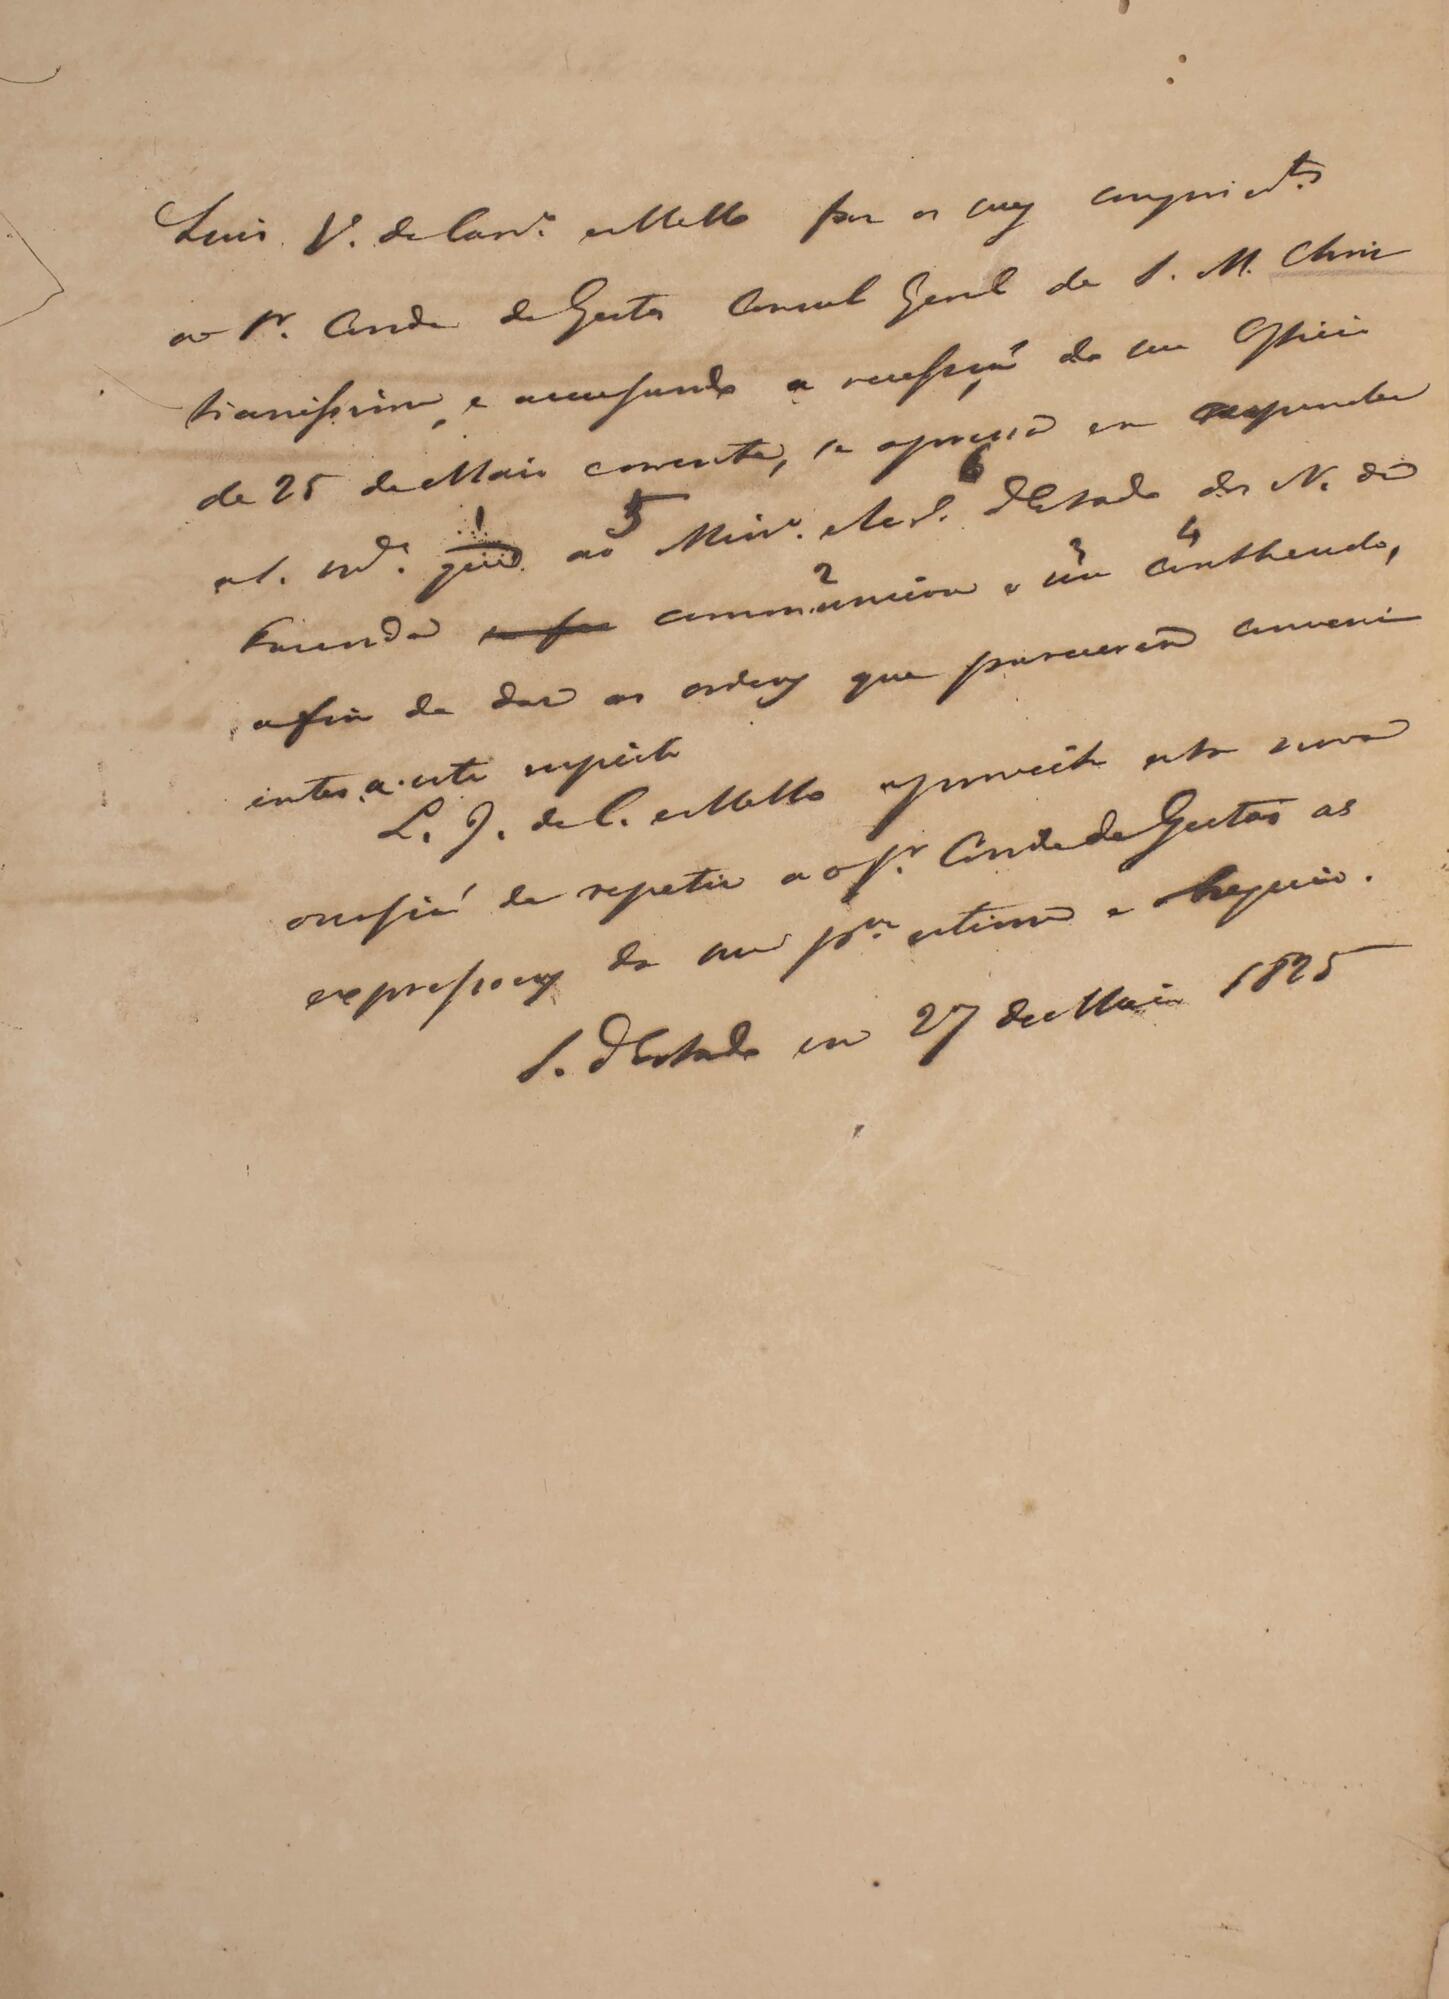 Luis J. de Carv.º e Mello faz os seus cumprim.tos
ao Sr. Conde de Gestas Consul Geral de S. M. Chris
tianissima, e accusando a recepção do seu Officio
de 25 de Maio corrente, se apressa em responder
a S. que ao Minr.º e Secr.º d'Estado dos N. da
Fazenda communicou o seu contheudo,
afim de dar as ordens que parecerem conveni
entes a este respeito
L. J. de C. e Mello aproveita esta nova
occasião de repetir ao Sr. Conde de Gestas as
expressoens da sua estima e obsequio.
S. d'Estado em 27 de Maio 1825